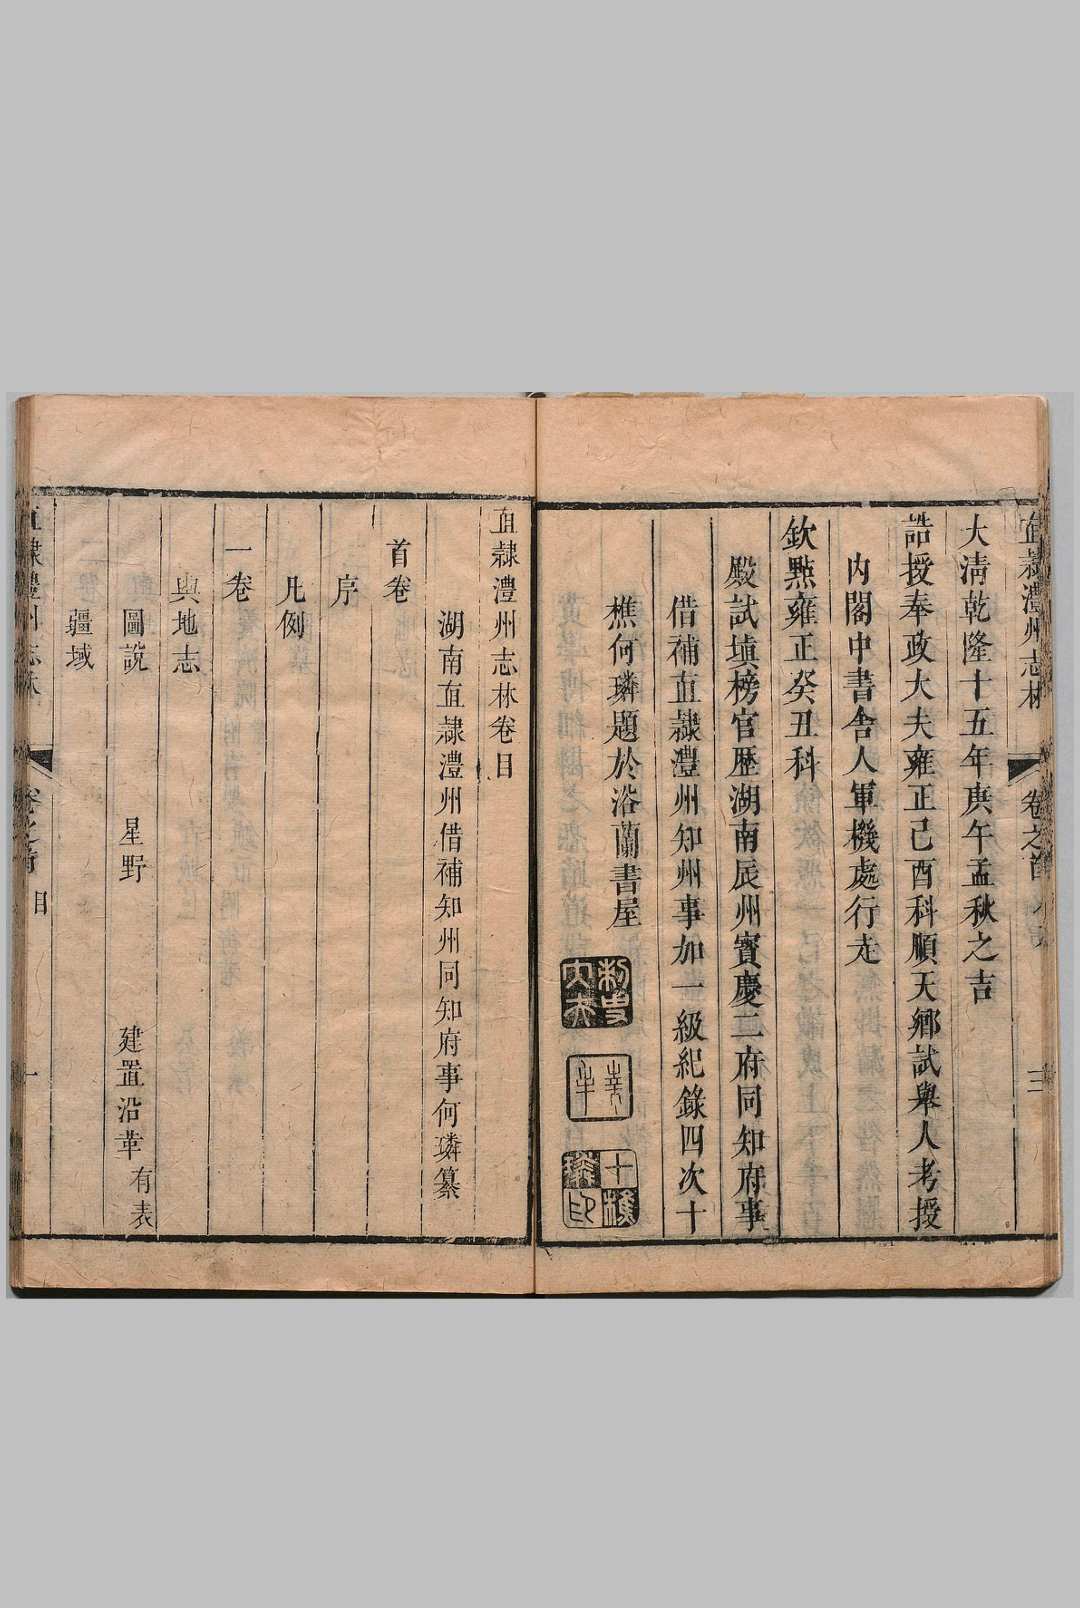 直隸澧州志林
卷之首
三
大淸乾隆十五年庚午孟秋之吉
誥授奉政大夫雍正己酉科順天鄉試舉人考授
內閣中書舍人軍機處行走
欽點雍正癸丑科
殿試塡榜官歷湖南辰州寶慶二府同知府事
借補直隸澧州知州事加一級紀錄四次十
樵何璘題於浴蘭書屋
刺史大夫
十樵
璘印
直隸澧州志林卷目
湖南直隸澧州借補知州同知府事何璘纂
首卷
序
凡例
一卷
輿地志
圖說 星野 建置沿革有表
疆域
直隸澧州志林
卷之首
目
一